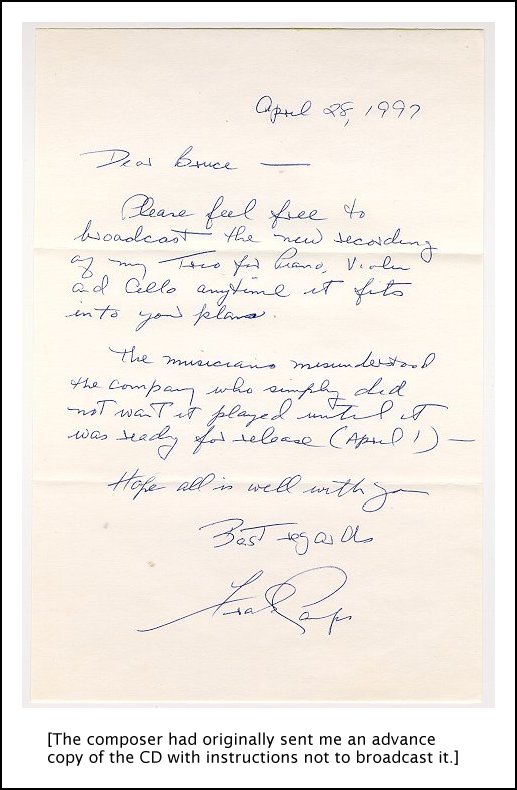 April 28, 1997
Dear Bruce —
Please feel free to
broadcast the new recording
of my Trio for Piano, Violin
and Cello anytime it fits
into your plans.
The musicians misunderstood
the company who simply did
not want it played until it
was ready for release (April 1) —
Hope all is well with you
Best regards
[The composer had originally sent me an advance
copy of the CD with instructions not to broadcast it.]